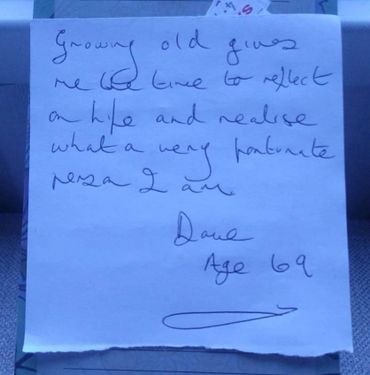 Growing old gives
me the time to reflect
on life and realise
what a very fortunate
person I am
Dave
Age 69